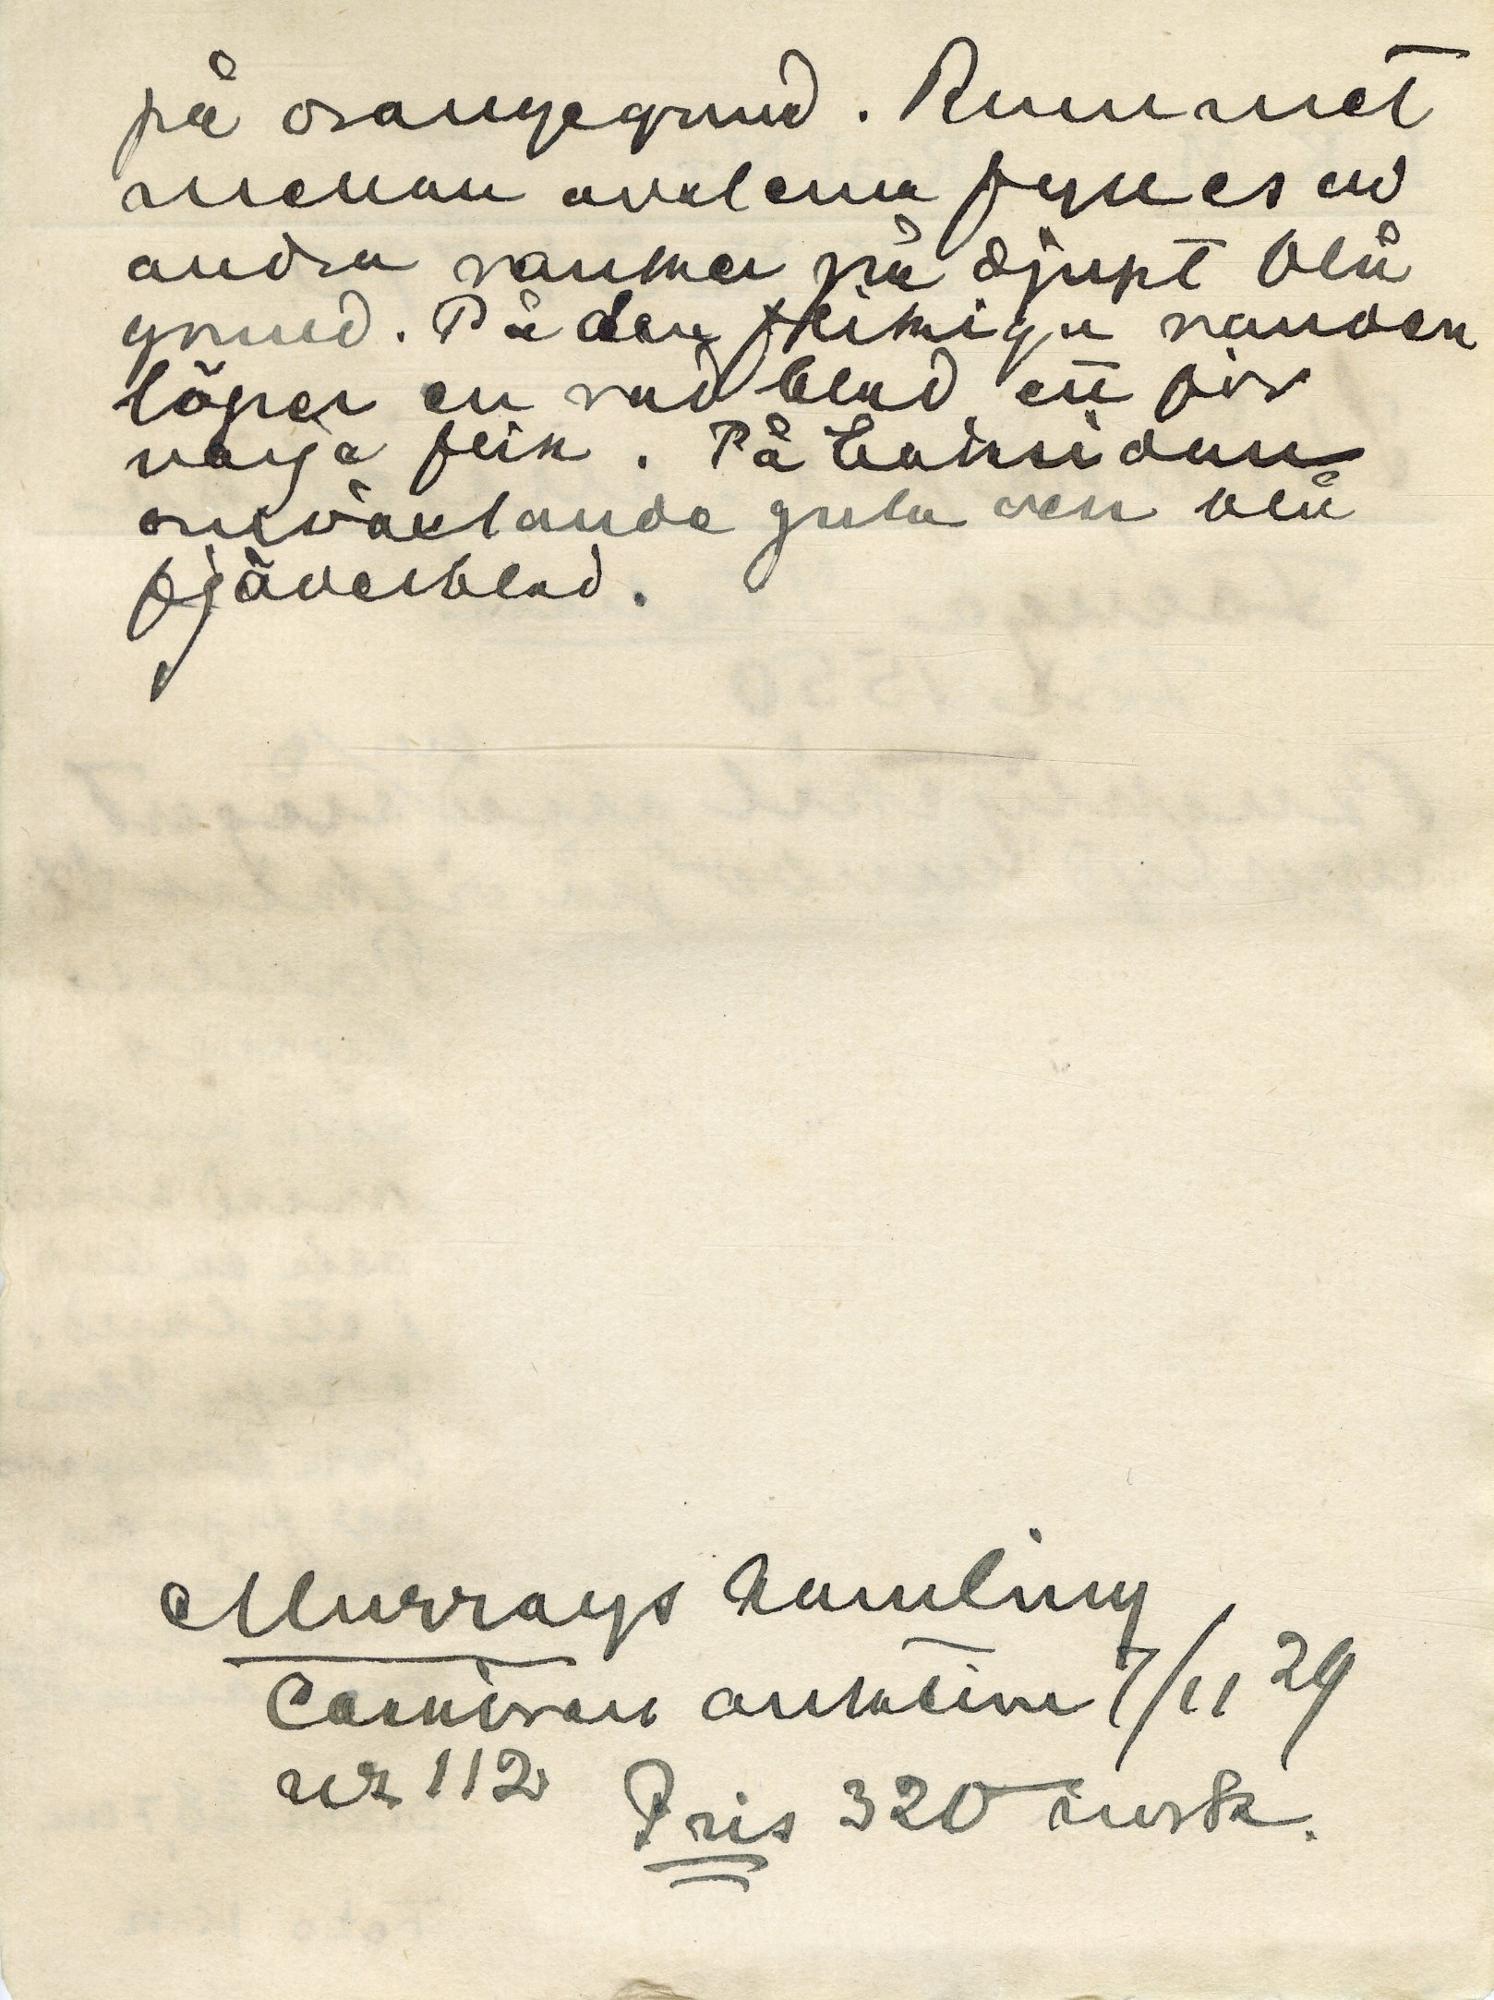 på orangegrund. Rummet
mellan ovalerna fylles av
andra rankor på djupt blå
grund. På den flikiga randen
löper en rad blad, ett för
varje flik. På baksidan
omväxlande gula och blå
fjäderblad.
Murrays Samling
auktion 7/11 29
nr 112 Pris 320 mark.